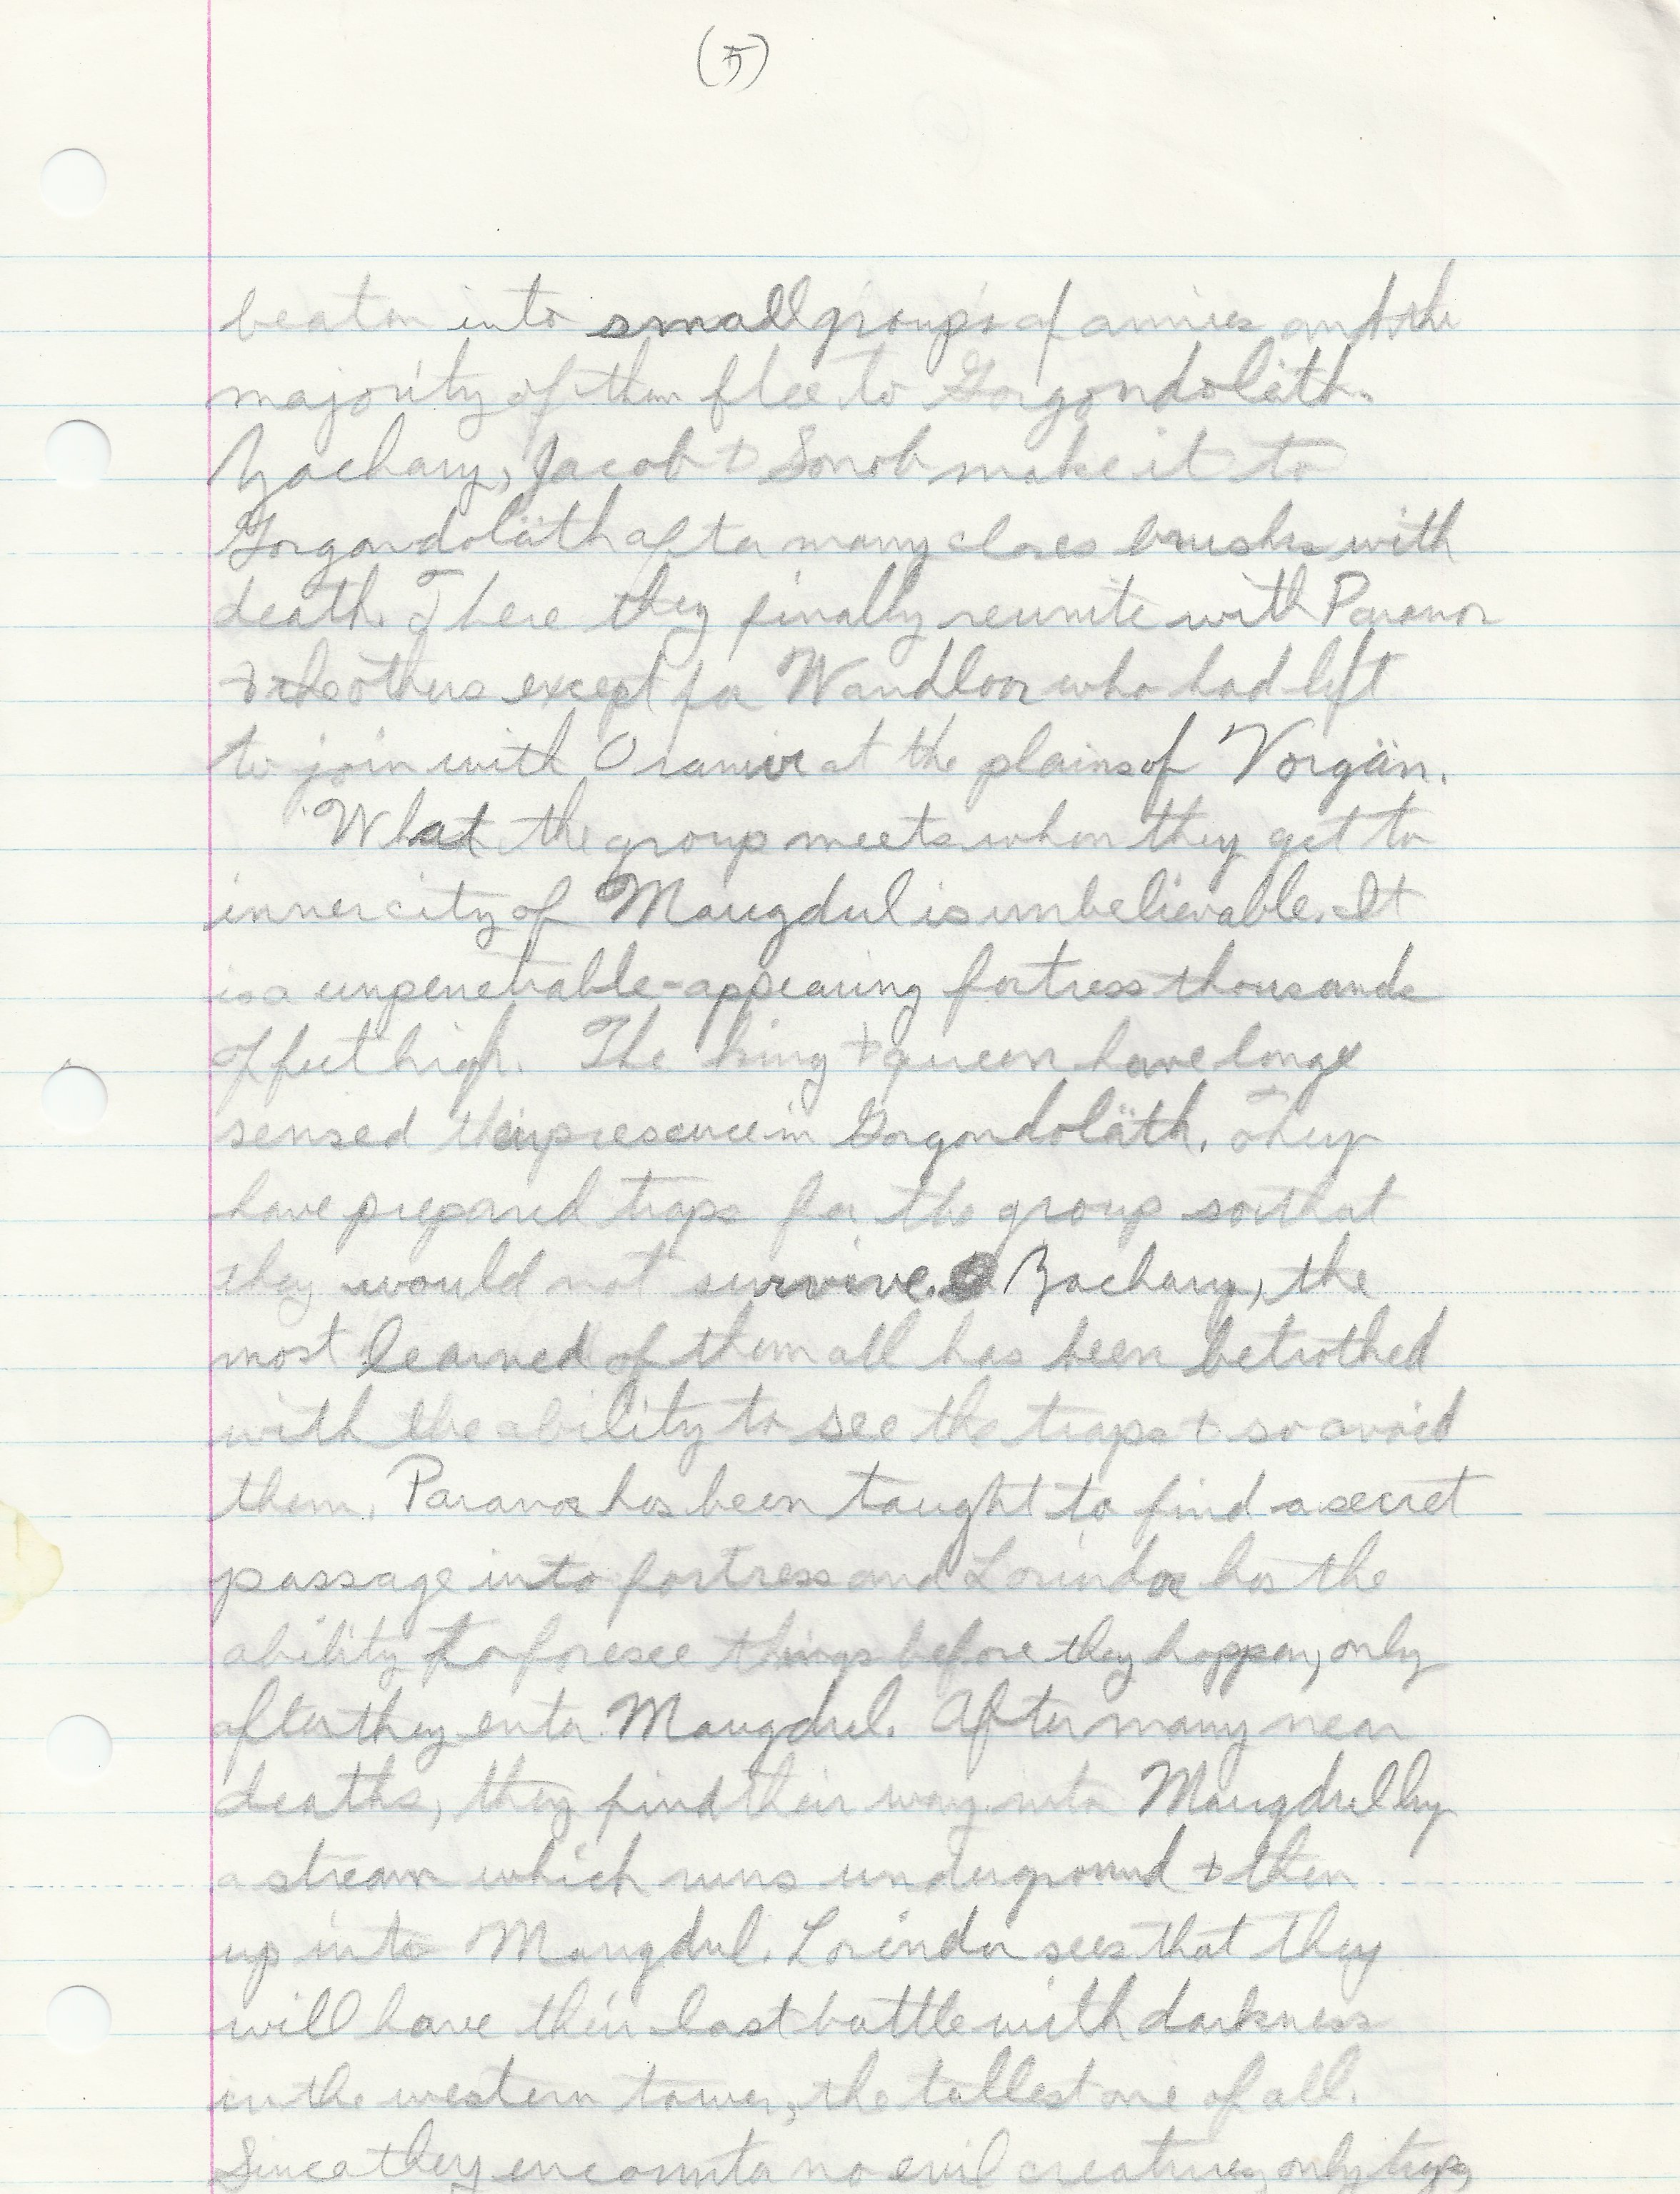 (5)
beaten into small groups of armies and the
majority of them flee to Gorgondoläth.
Zachary, Jacob + Sorob make it to
Gorgondoläth after many closes brushes with
death. There they finally reunite with Paranor
+ the others except for Wandloor who had left
to join with Oramir at the plains of Vorgän.
What the group meets when they get to
inner city of Maugdul is unbelievable. It
is a unpenetrable-appearing fortress thousands
of feet high. The king + queen have long
sensed their presence in Gorgondoläth. They
have prepared traps for the group so that
they would not survive. Zachary, the
most learned of them all has been betrothed
with the ability to see the traps + so avoid
them. Paranor has been taught to find a secret
passage into fortress and Lorindor has the
ability to foresee things before they happen, only
after they enter Maugdul. After many near
deaths, they find their way into Maugdul by
a stream which runs underground + then
up into Maugdul. Lorindor sees that they
will have their last battle with darkness
in the western tower, the tallest one of all.
Since they encounter no evil creatures, only traps,